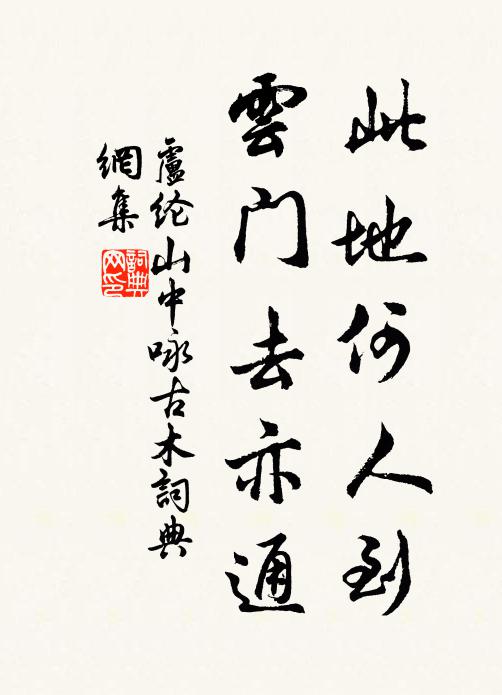 此地何人到
雲門去亦通
盧纶山中咏古木詞典
網集
詞典
网印